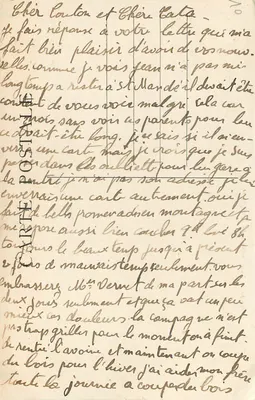 Chèr Tonton et Chère Tata
je fais réponse à votre lettre qui m'a
fait bien plaisir d'avoir de vos nouv
elles, comme je vois jean n'a pas mi
longtemps a rister a St Mandé il devait être
content de vous voir malgre cela car
un mois sans voir ces parents pour lui
ce devait être long, je sais si il m'en
verra une cart mais je crois que je
dans les oubliett pour
la rentré je n'ai pas son adresse je lui
enverrais une cart autrement, oui je
fait de bells promenades en montagne et je
me repose aussi bien coucher 9h levé 8h
toujours le beau temps jusqu'à présent
2 jours de mauvais temps seulement, vous
embrasserz Mes Verret de ma part sur les
deux joues seulement et que ça vat un peu
mieux ces douleurs la campagne n'est
pas trop griller pour le moment on a finit
de rentré l'avoine et maintenant on coupe
du bois pour l'hiver j'ai aider mon frère
toute la journée a couper du bois
CARTE POSTALE